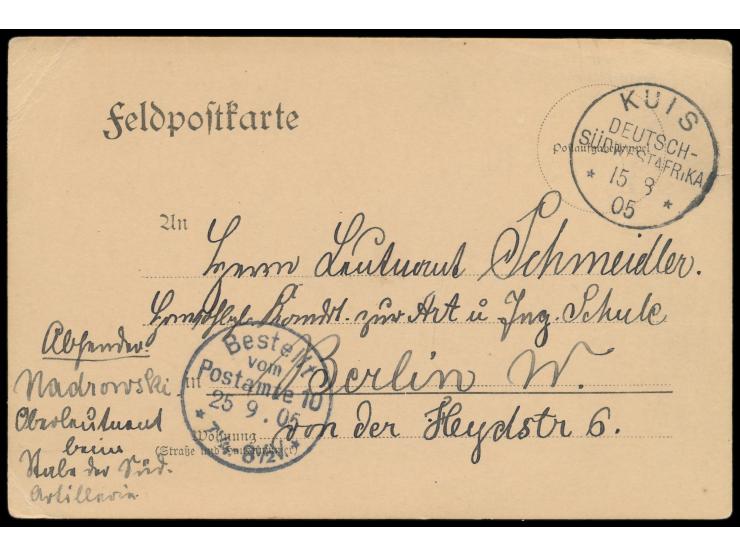 Feldpostkarte
KUIS
DEUTSCH-
SÜDWESTAFRIKA
* 15 8 *
05
Postaufgabestempel
An
Herrn Leutnant Schmeidler.
Komdrt. zur Art u Ing. Schule
in Berlin W.
Wohnung von der Heydstr 6.
(Straße und Hausnummer)
Bestellt
vom
Postamte 10
25 9. 05
* 7¼-8½V. *
Absender:
Nadrowski
Oberleutnant
beim
Stabe der Süd-
Artillerie